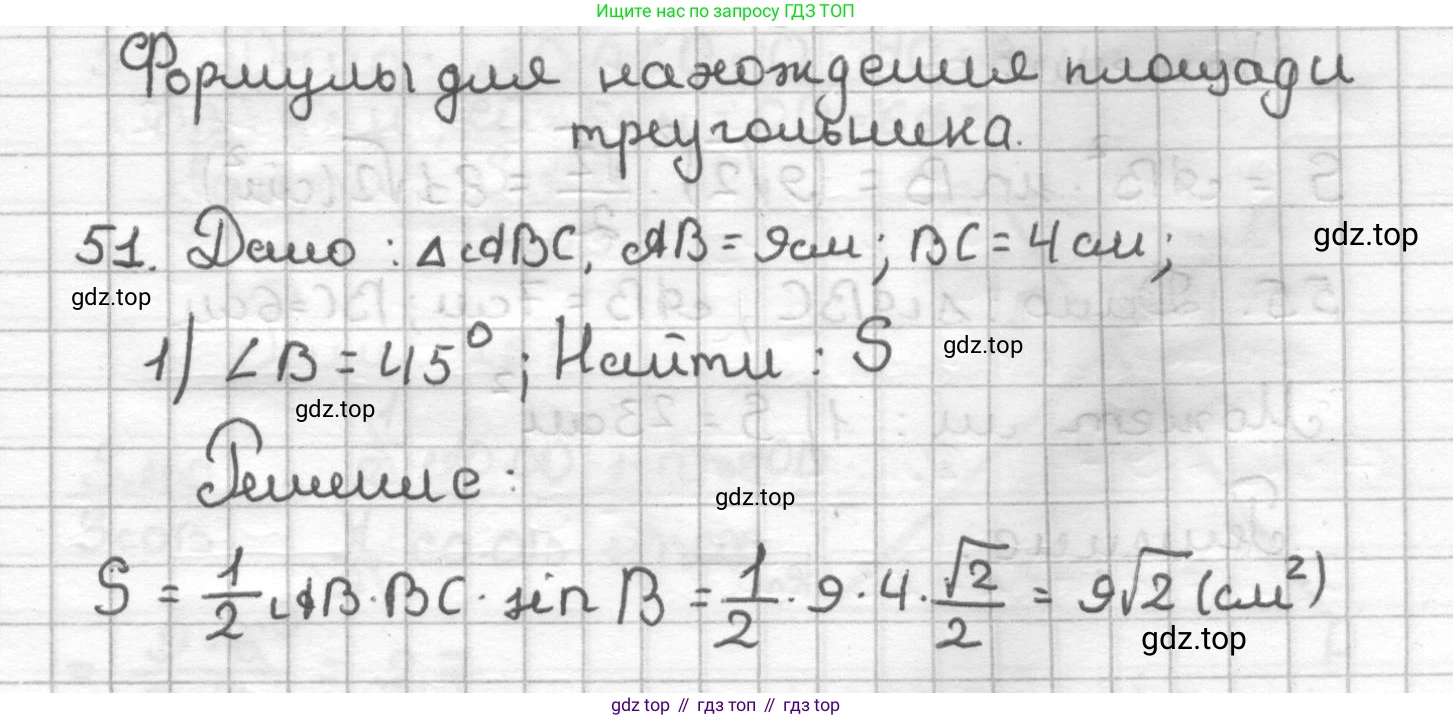 Ищите нас по запросу ГДЗ ТОП
Формулы для нахождения площади
треугольника.
51. Дано: △ABC, AB = 9см; BC = 4см;
gdz.top
gdz.top
1) ∠B = 45°; Найти: S
gdz.top
gdz.top
Решение:
gdz.top
S = 1/2 AB · BC · sin B = 1/2 · 9 · 4 · √2/2 = 9√2 (см²)
gdz.top
gdz top // гдз топ // гдз top